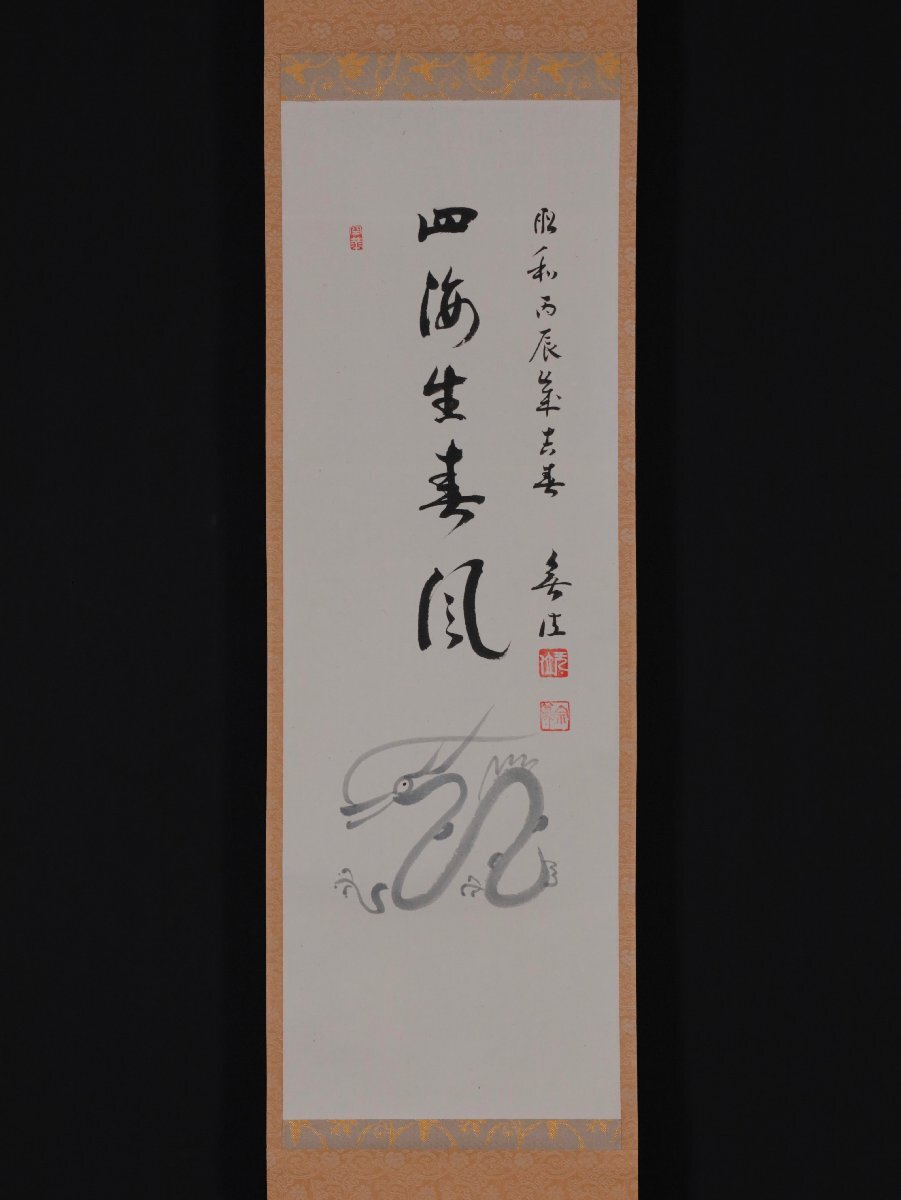 昭和丙辰歳吉春
四海生春風